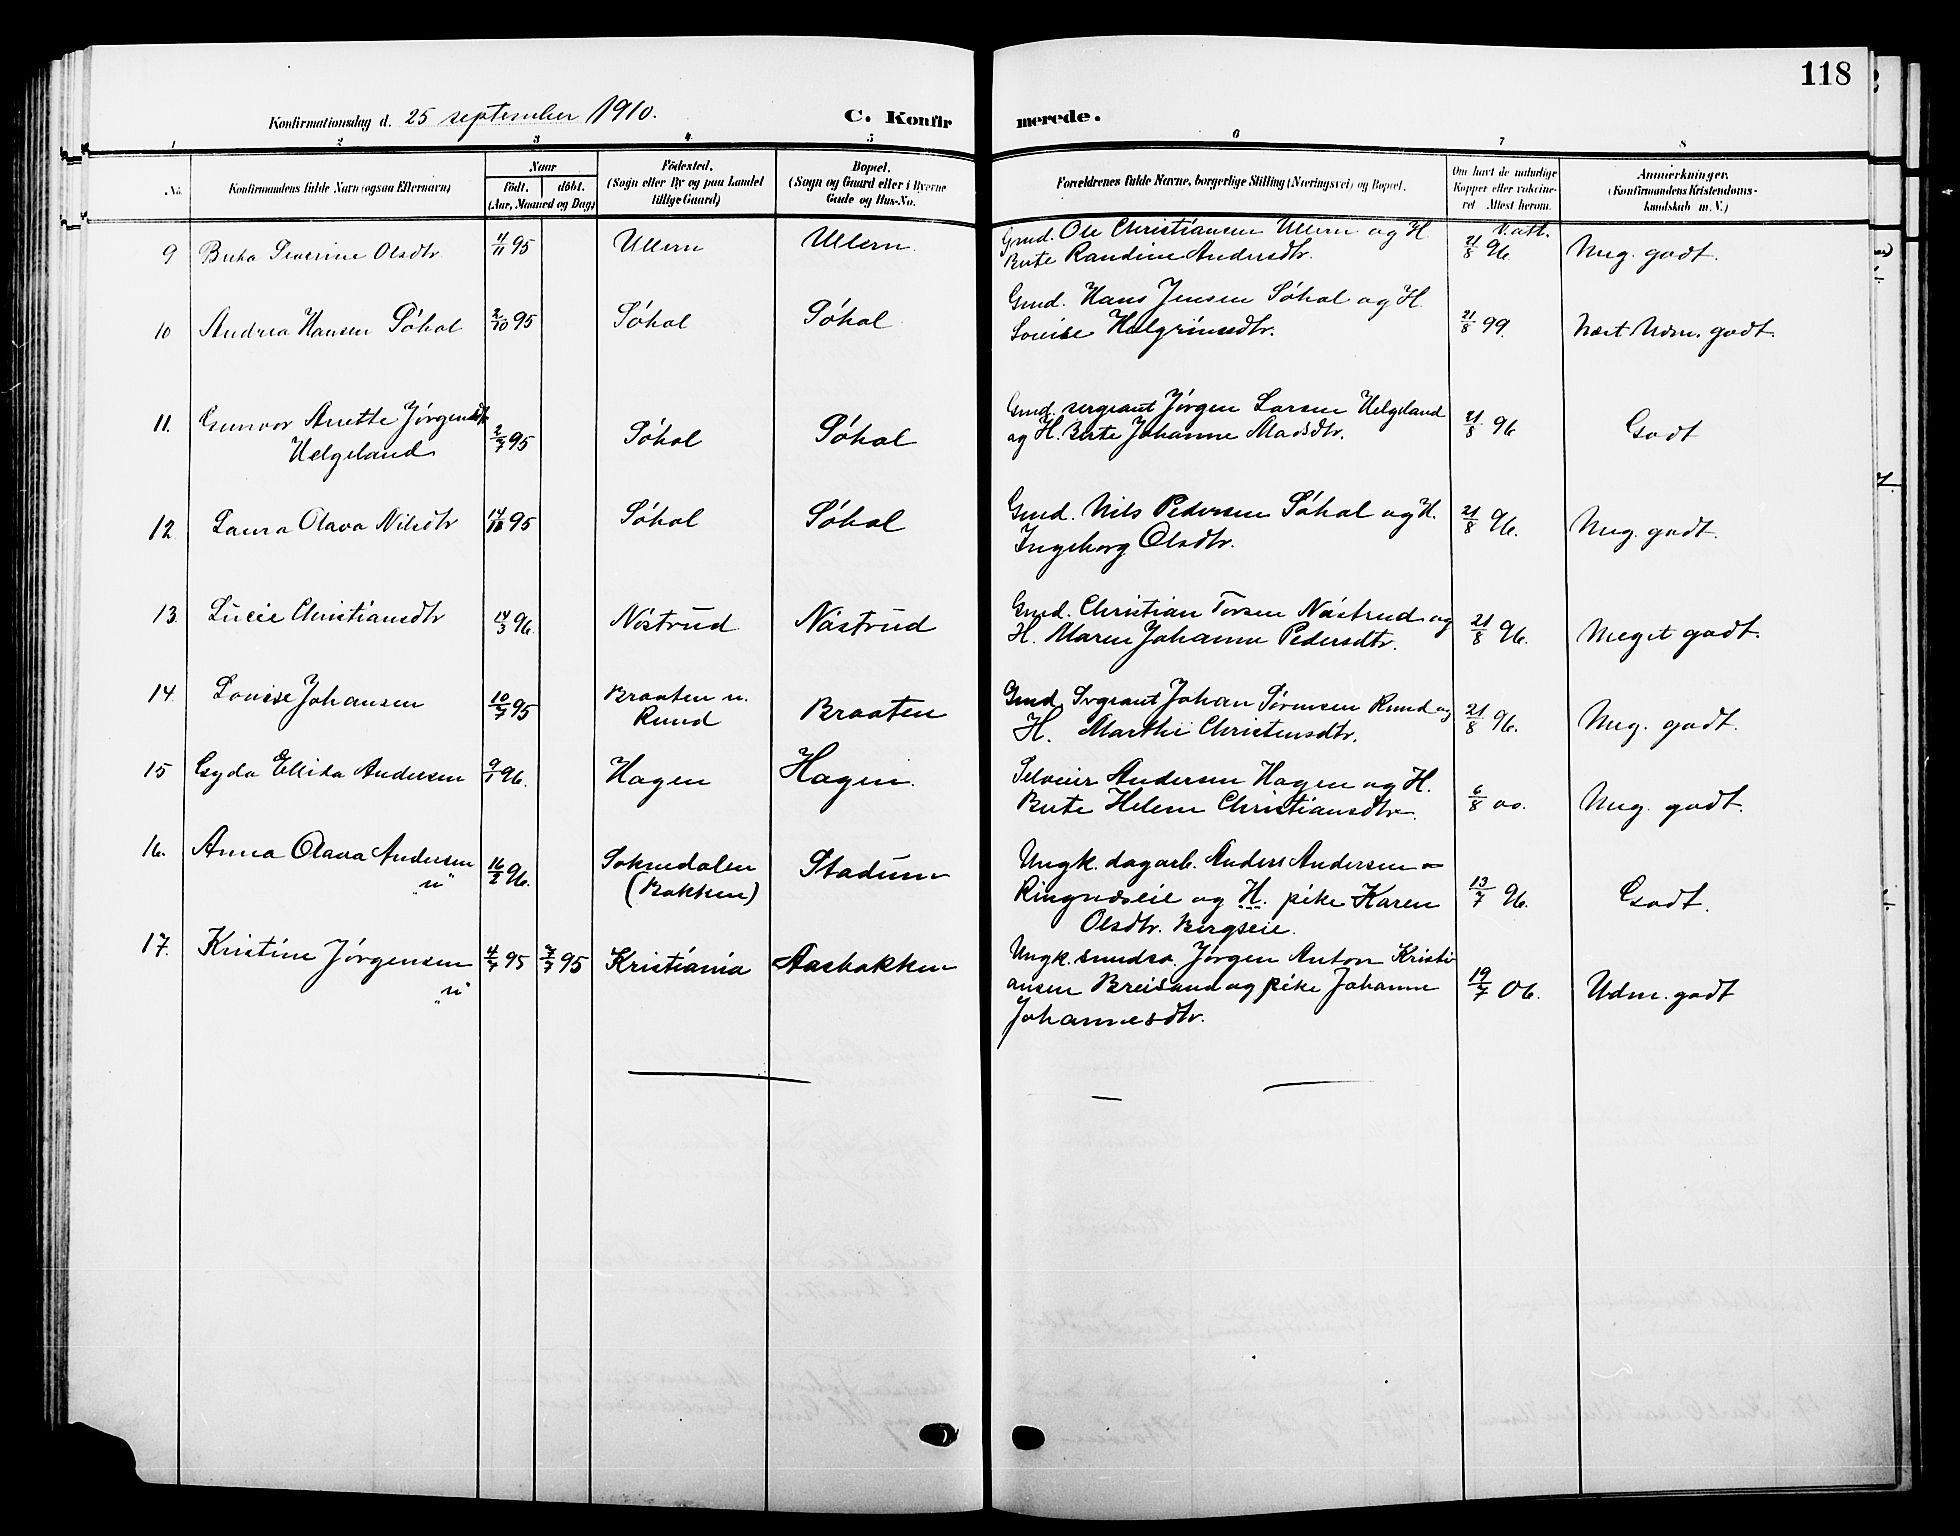 118
Konfirmationsdag d. 25 september 1910.
C. Konfirmerede.
1 2 3 4 5 6 7 8
No.
Konfirmandens fulde Navn (ogsaa Efternavn)
Naar
födt. döbt.
(Aar, Maaned og Dag)
Födested.
(Sogn eller By og paa Landet
tillige Gaard)
Bopæl.
(Sogn og Gaard eller i Byerne
Gade og Hus-No.
Forældrenes fulde Navne, borgerlige Stilling (Næringsvei) og Bopæl.
Om havt de naturlige
Kopper eller vakcine-
ret. Attest herom.
Anmærkninger.
(Konfirmandens Kristendoms-
kundskab m. V.)
9 Berta Severine Olsdtr 11/11 95 Ullern Ullern.
Gmd. Ole Christiansen Ullern og H.
Berte Randine Andersdtr.
V. att.
21/8 96 Meg. godt.
10 Andrea Hansen Søhol 2/10 95 Søhol Søhol
Gmd. Hans Jensen Søhol og H.
Lovise Halgrimsdtr.
21/8 99. Næst Udm. godt.
11. Gunvor Anette Jørgensdtr
Helgeland
2/7 95 Søhol Søhol
Gmd. sergeant Jørgen Larsen Helgeland
og H. Berte Johanne Madsdtr.
21/8 96 Godt
12 Laura Olava Nilsdtr 14/ 95 Søhol Søhol
Gmd. Nils Pedersen Søhol og H.
Ingeborg Olsdtr.
21/8 96. Meg. godt.
13. Lucie Christiansdtr 14/3 96. Nøstrud Nøstrud
Gmd. Christian Torsen Nøstrud og
H. Maren Johanne Pedersdtr.
21/8 96. Meget godt.
14. Lovise Johansen 10/7 95 Braaten u. Braaten
Rund
Gmd. Sergeant Johan Sørensen Rund og
H. Marthe Christensdtr.
21/8 96. Meg. godt.
15 Gyda Elida Andersen 9/1 96. Hagen Hagen.
Selveier Andersen Hagen og H.
Berte Helene Christiansdtr.
6/8 00. Meg. godt.
16. Anna Olava Andersen
"u"
16/2 96. Soknedalen Stadum
(Bakken)
Ungk. dagarb. Anders Andersen
Ringnæseie og H. pike Karen
Olsdtr. Bergseie.
13/7 96. Godt.
17. Kristine Jørgensen
"u"
4/7 95 7/7 95 Kristiania Aasbakken
Ungk. Jørgen Anton Kristi
ansen og pike Johanne
Johannesdtr.
19/7 06. Udm. godt